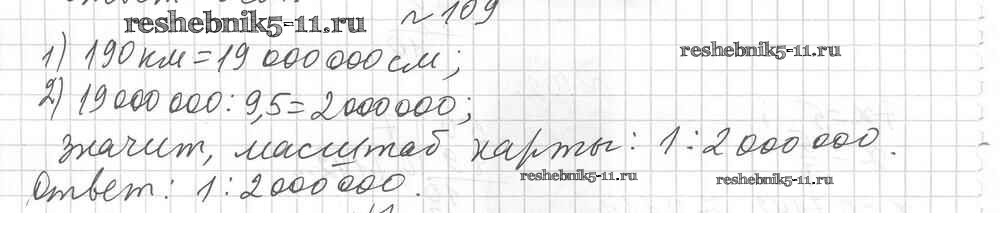 № 109
reshebnik5-11.ru
1) 190 км = 19 000 000 см;
reshebnik5-11.ru
2) 19 000 000 : 9,5 = 2 000 000;
значит, масштаб карты: 1 : 2 000 000.
reshebnik5-11.ru
reshebnik5-11.ru
Ответ: 1 : 2 000 000.